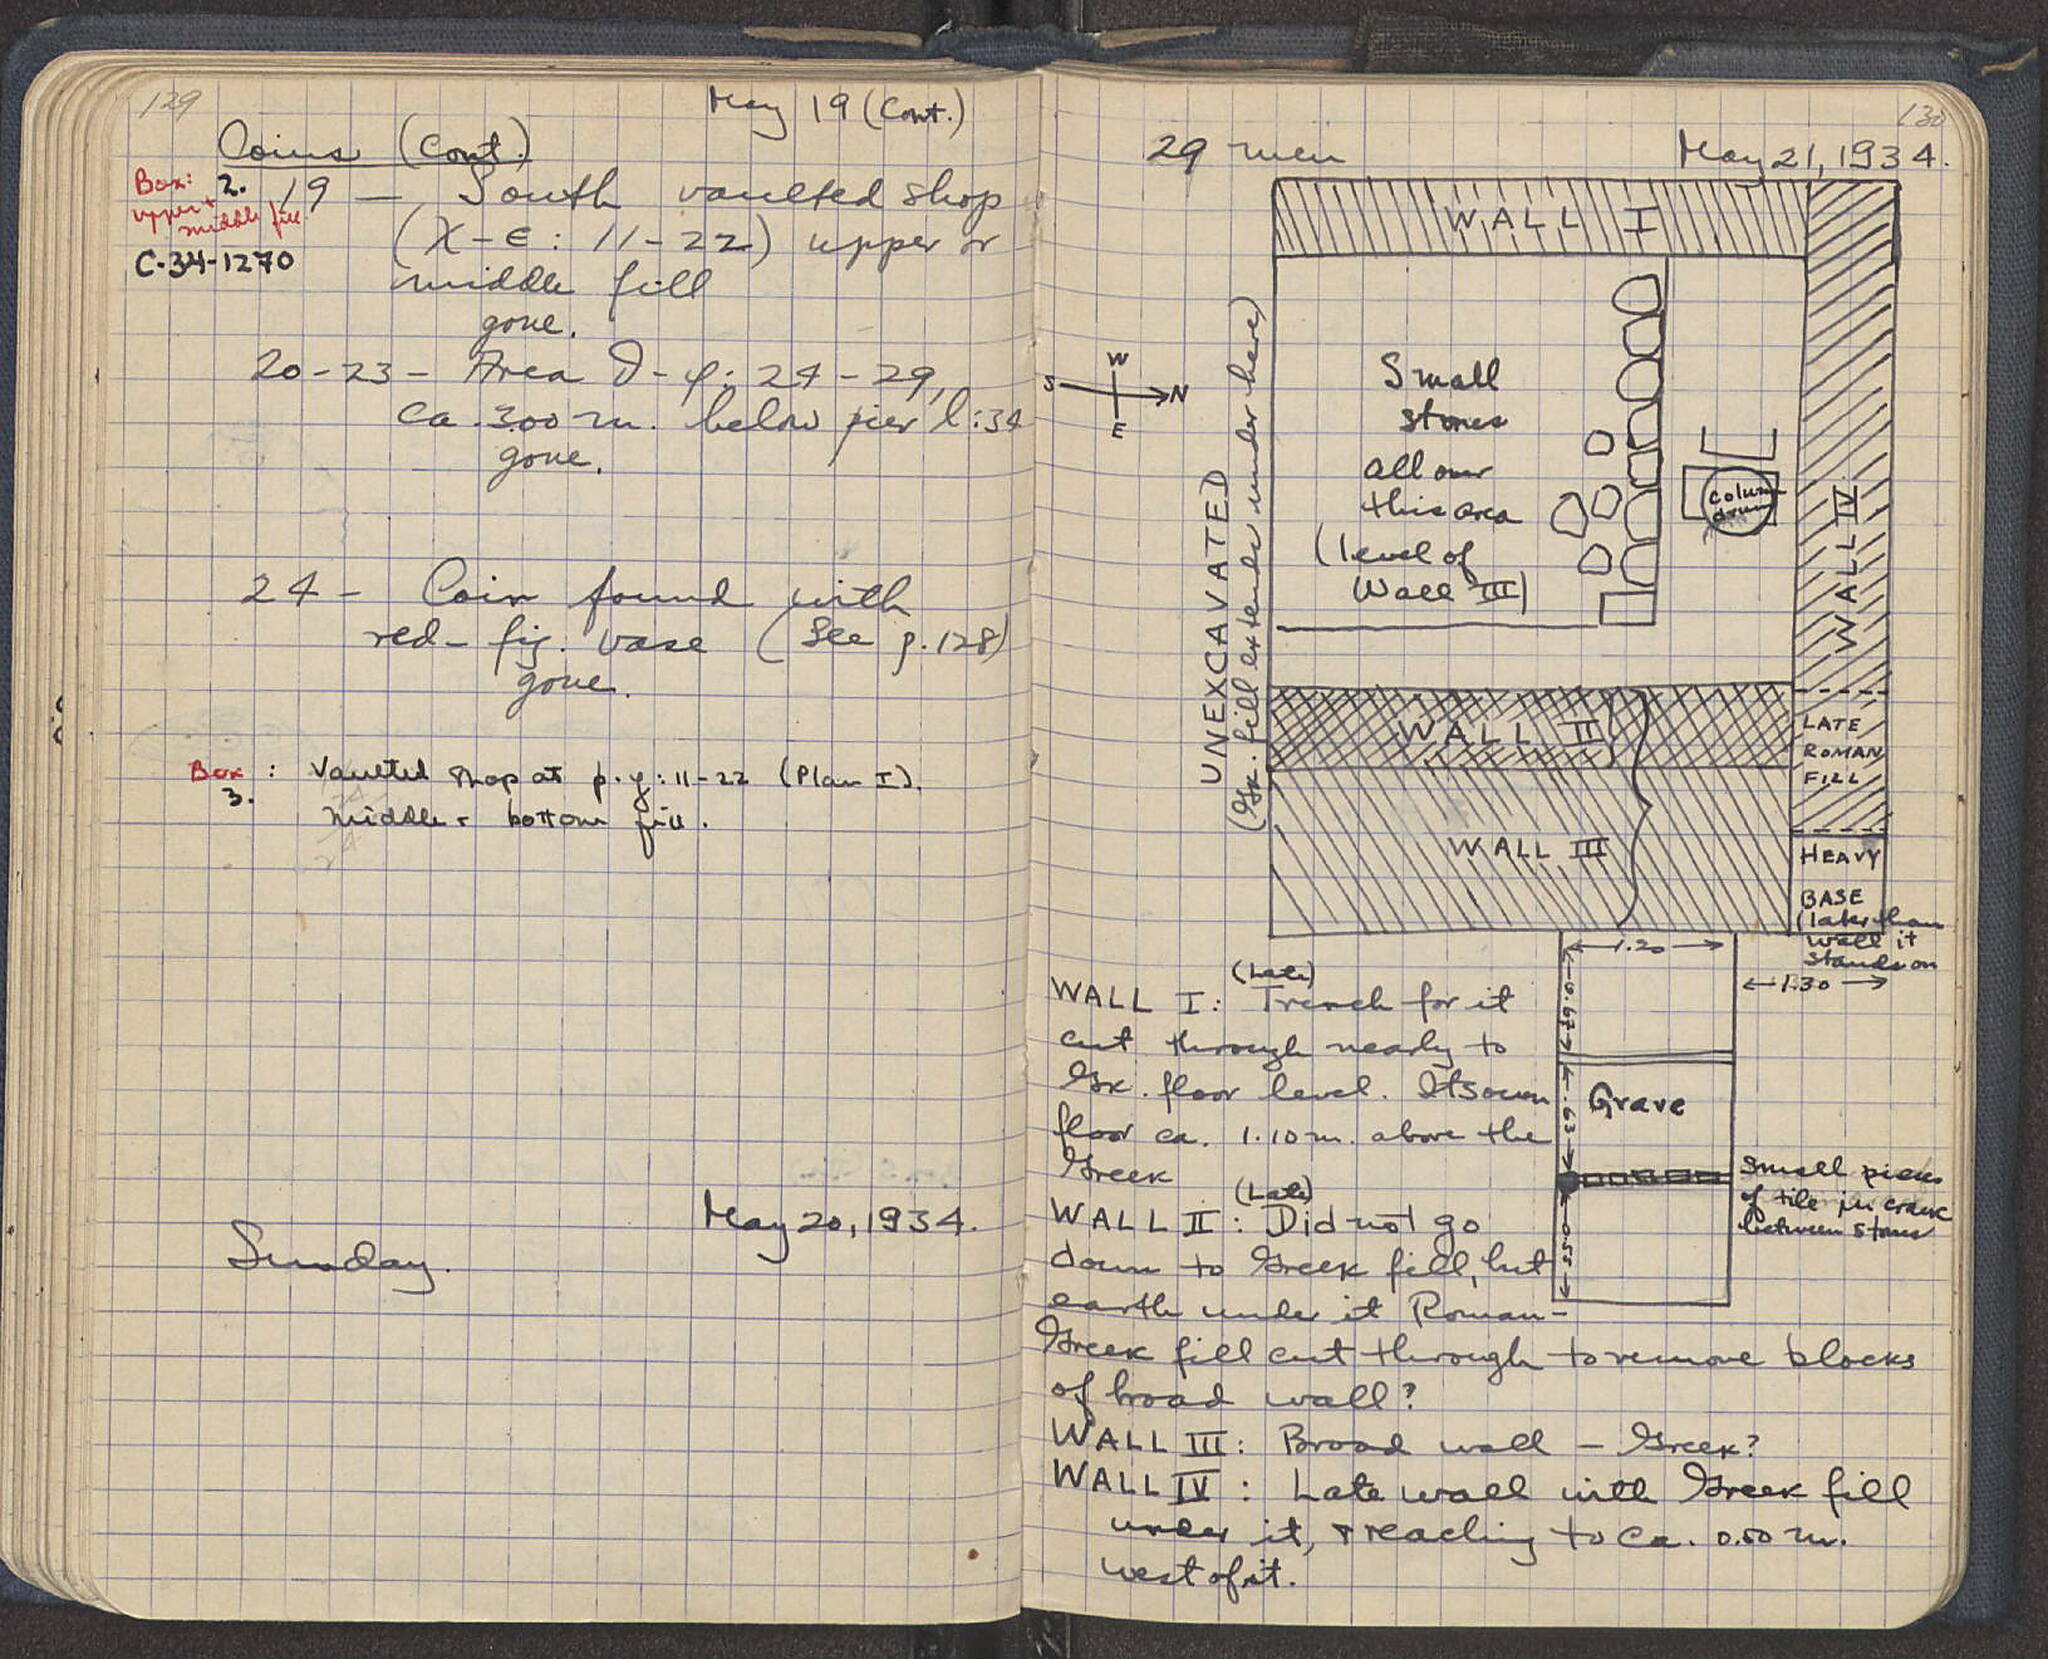 129
May 19 (Cont.)
Coins (Cont.)
Box: 2.
upper + middle fill
C-34-1270
19 — South vaulted shop
(X-E: 11-22) upper or
middle fill
gone.
20-23 - Area D-φ: 24-29,
ca. 3.00 m. below pier l:34
gone.
24 - Coin found with
red-fig. vase (See p. 128)
gone.
Box 3. : Vaulted shop at p-y: 11-22 (Plan I).
middle + bottom fill.
May 20, 1934.
Sunday.
130
29 men
May 21, 1934.
WALL I
W
S N
E
UNEXCAVATED
(Gk. fill extends under here)
Small
stones
all over
this area
(level of
Wall III)
Column
drum
WALL IV
WALL II
LATE
ROMAN
FILL
WALL III
HEAVY
BASE
(later than
wall it
stands on
1.20
1.30
0.67
Grave
.63
0.55
Small pieces
of tile in crack
between stones
WALL I: (Late) Trench for it
cut through nearly to
Gk. floor level. Its own
floor ca. 1.10 m. above the
Greek
WALL II: (Late) Did not go
down to Greek fill, but
earth under it Roman-
Greek fill cut through to remove blocks
of broad wall?
WALL III: Broad wall — Greek?
WALL IV: Late wall with Greek fill
under it, + reaching to ca. 0.50 m.
west of it.